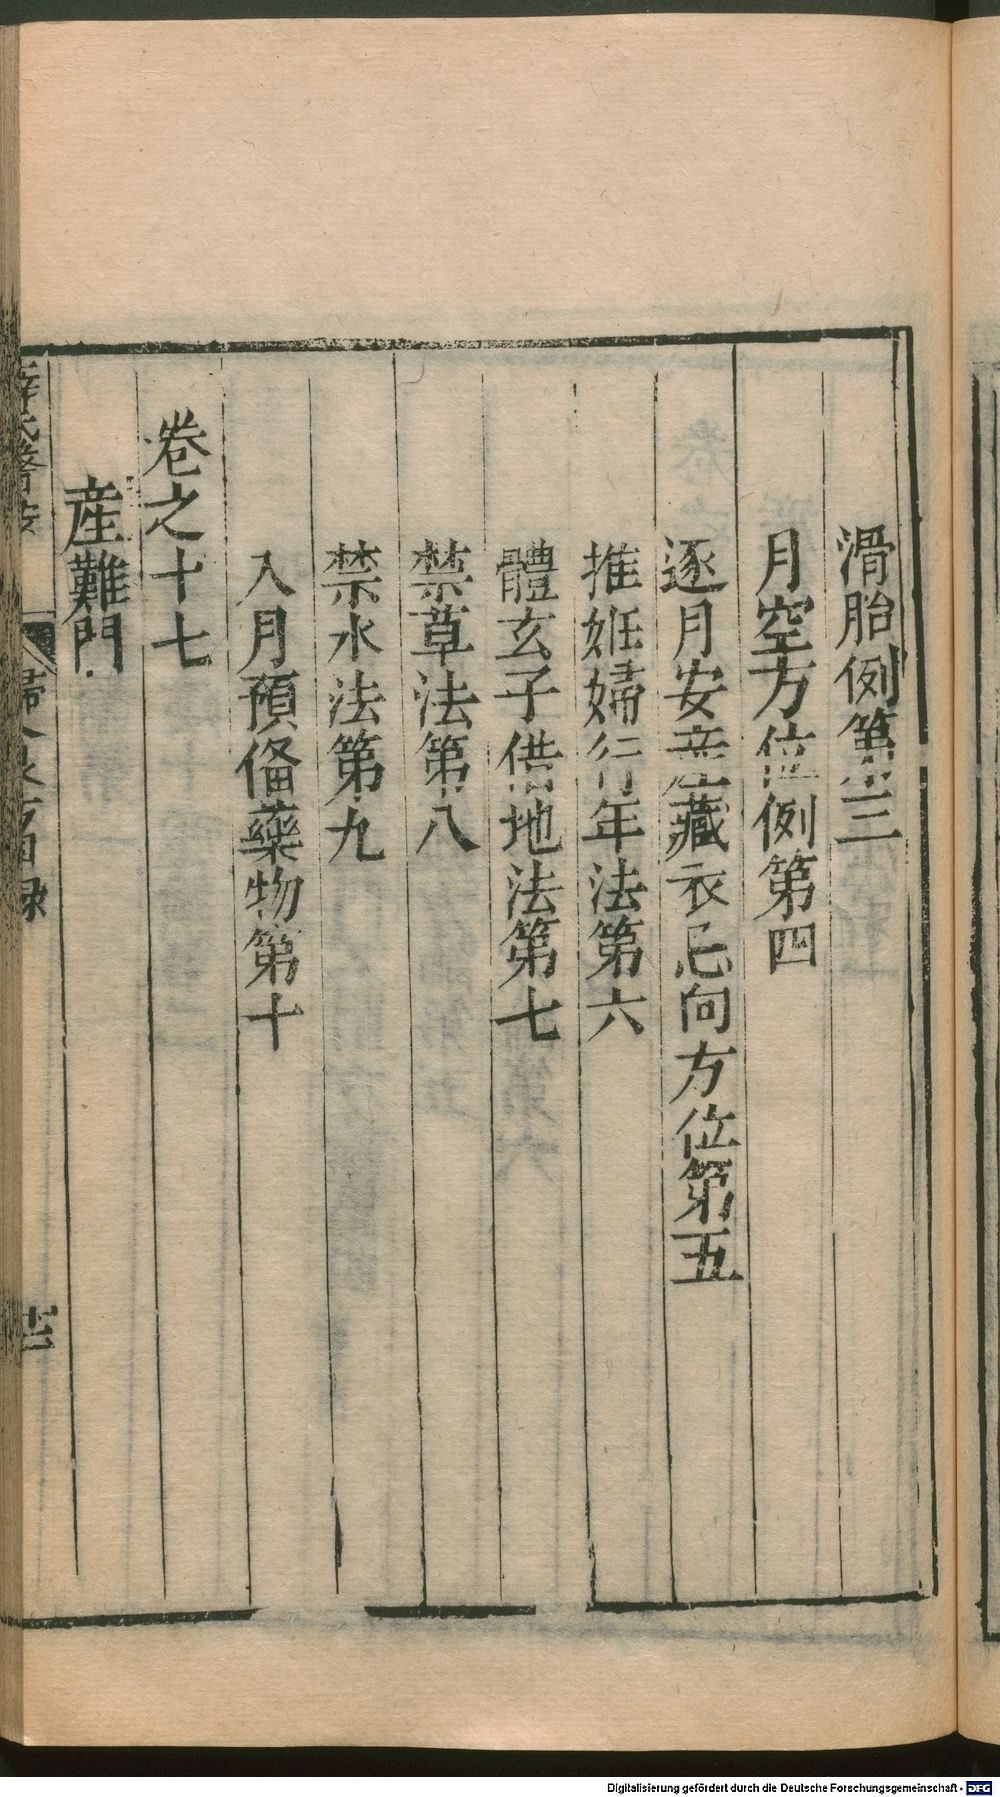 滑胎例第三
月空方位例第四
逐月安產藏衣忌向方位第五
推姙婦行年法第六
體玄子借地法第七
禁草法第八
禁水法第九
入月預俻藥物第十
卷之十七
産難門
Digitalisierung gefördert durch die Deutsche Forschungsgemeinschaft - DFG